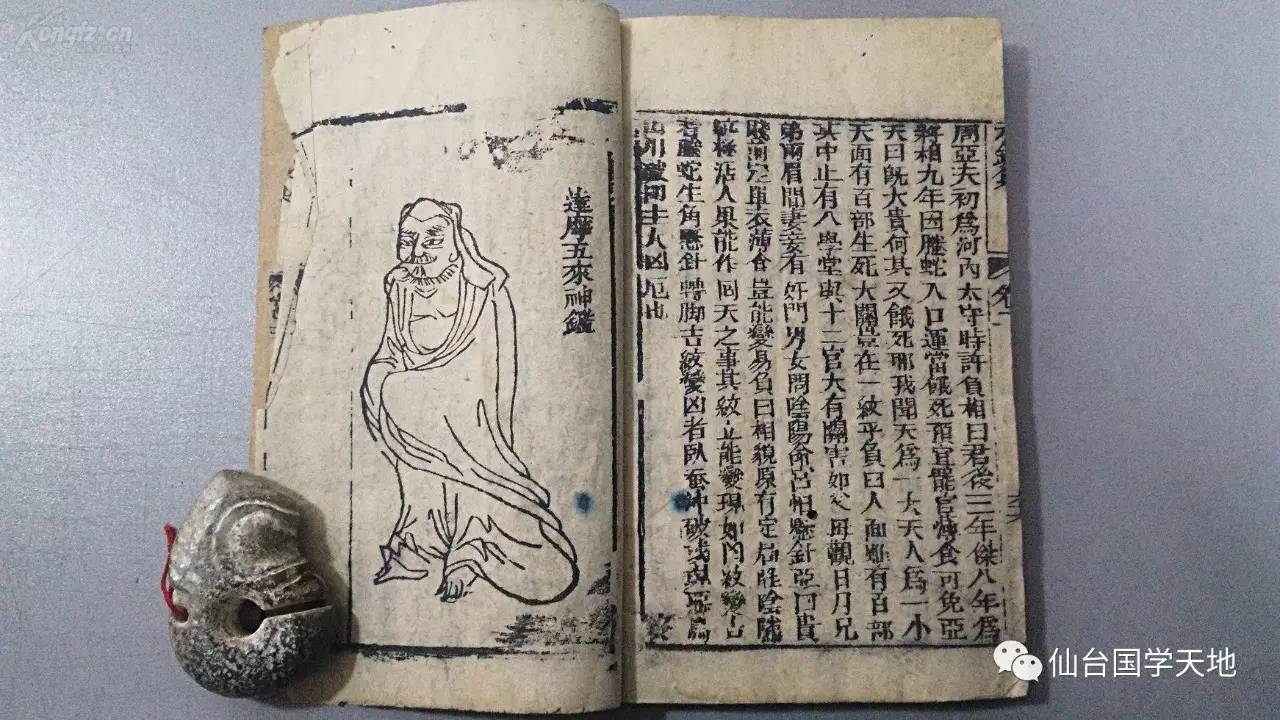 Kongfz.cn
周亞夫初爲河內太守時許負相曰君後三年傑八年爲
將相九年因螣蛇入口運當餓死預宜罷官燖食可免亞
夫曰旣大貴何其又餓死耶我聞天爲一大天人爲一小
天面有百部生死大關豈在一紋乎負曰人面雖有百部
其中止有八學堂與十二官大有關害如父母觀日月兄
弟兩眉間妻妾有奸門男女問陰陽命宮怕懸針亞曰貴
賤前定單衣薄食豈能變易負曰相貌原有定局陰陟
活人果能作回天之事其紋立能變現如凶紋變吉
者螣蛇生角懸針轉脚吉紋變凶者臥蚕冲破
達摩五來神鑑
仙台国学天地